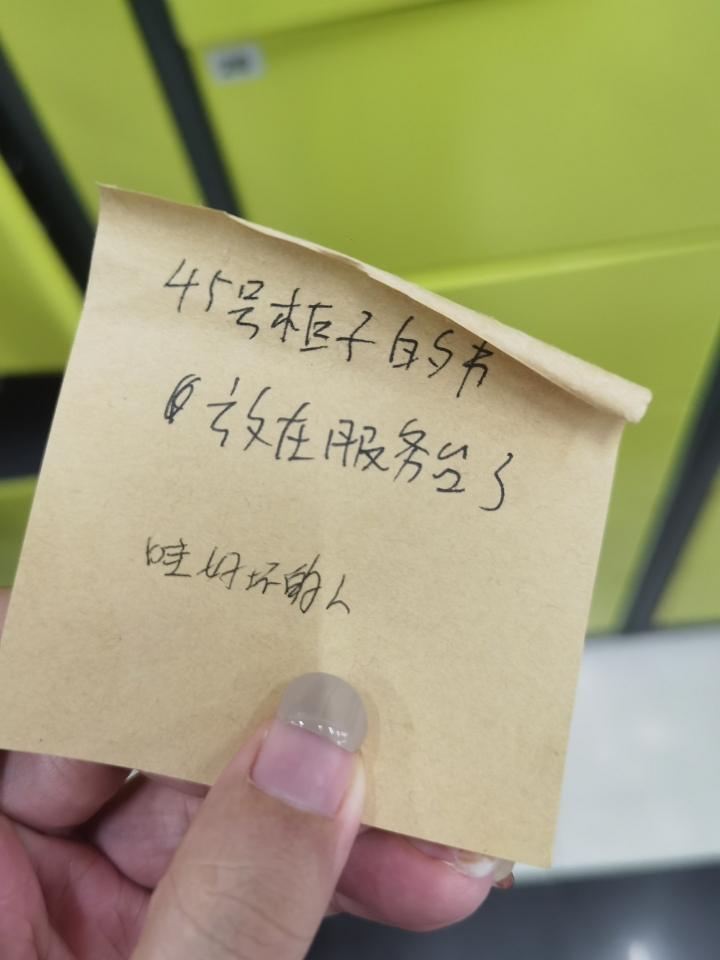 45号柜子的书
放在服务台了
哇好坏的人